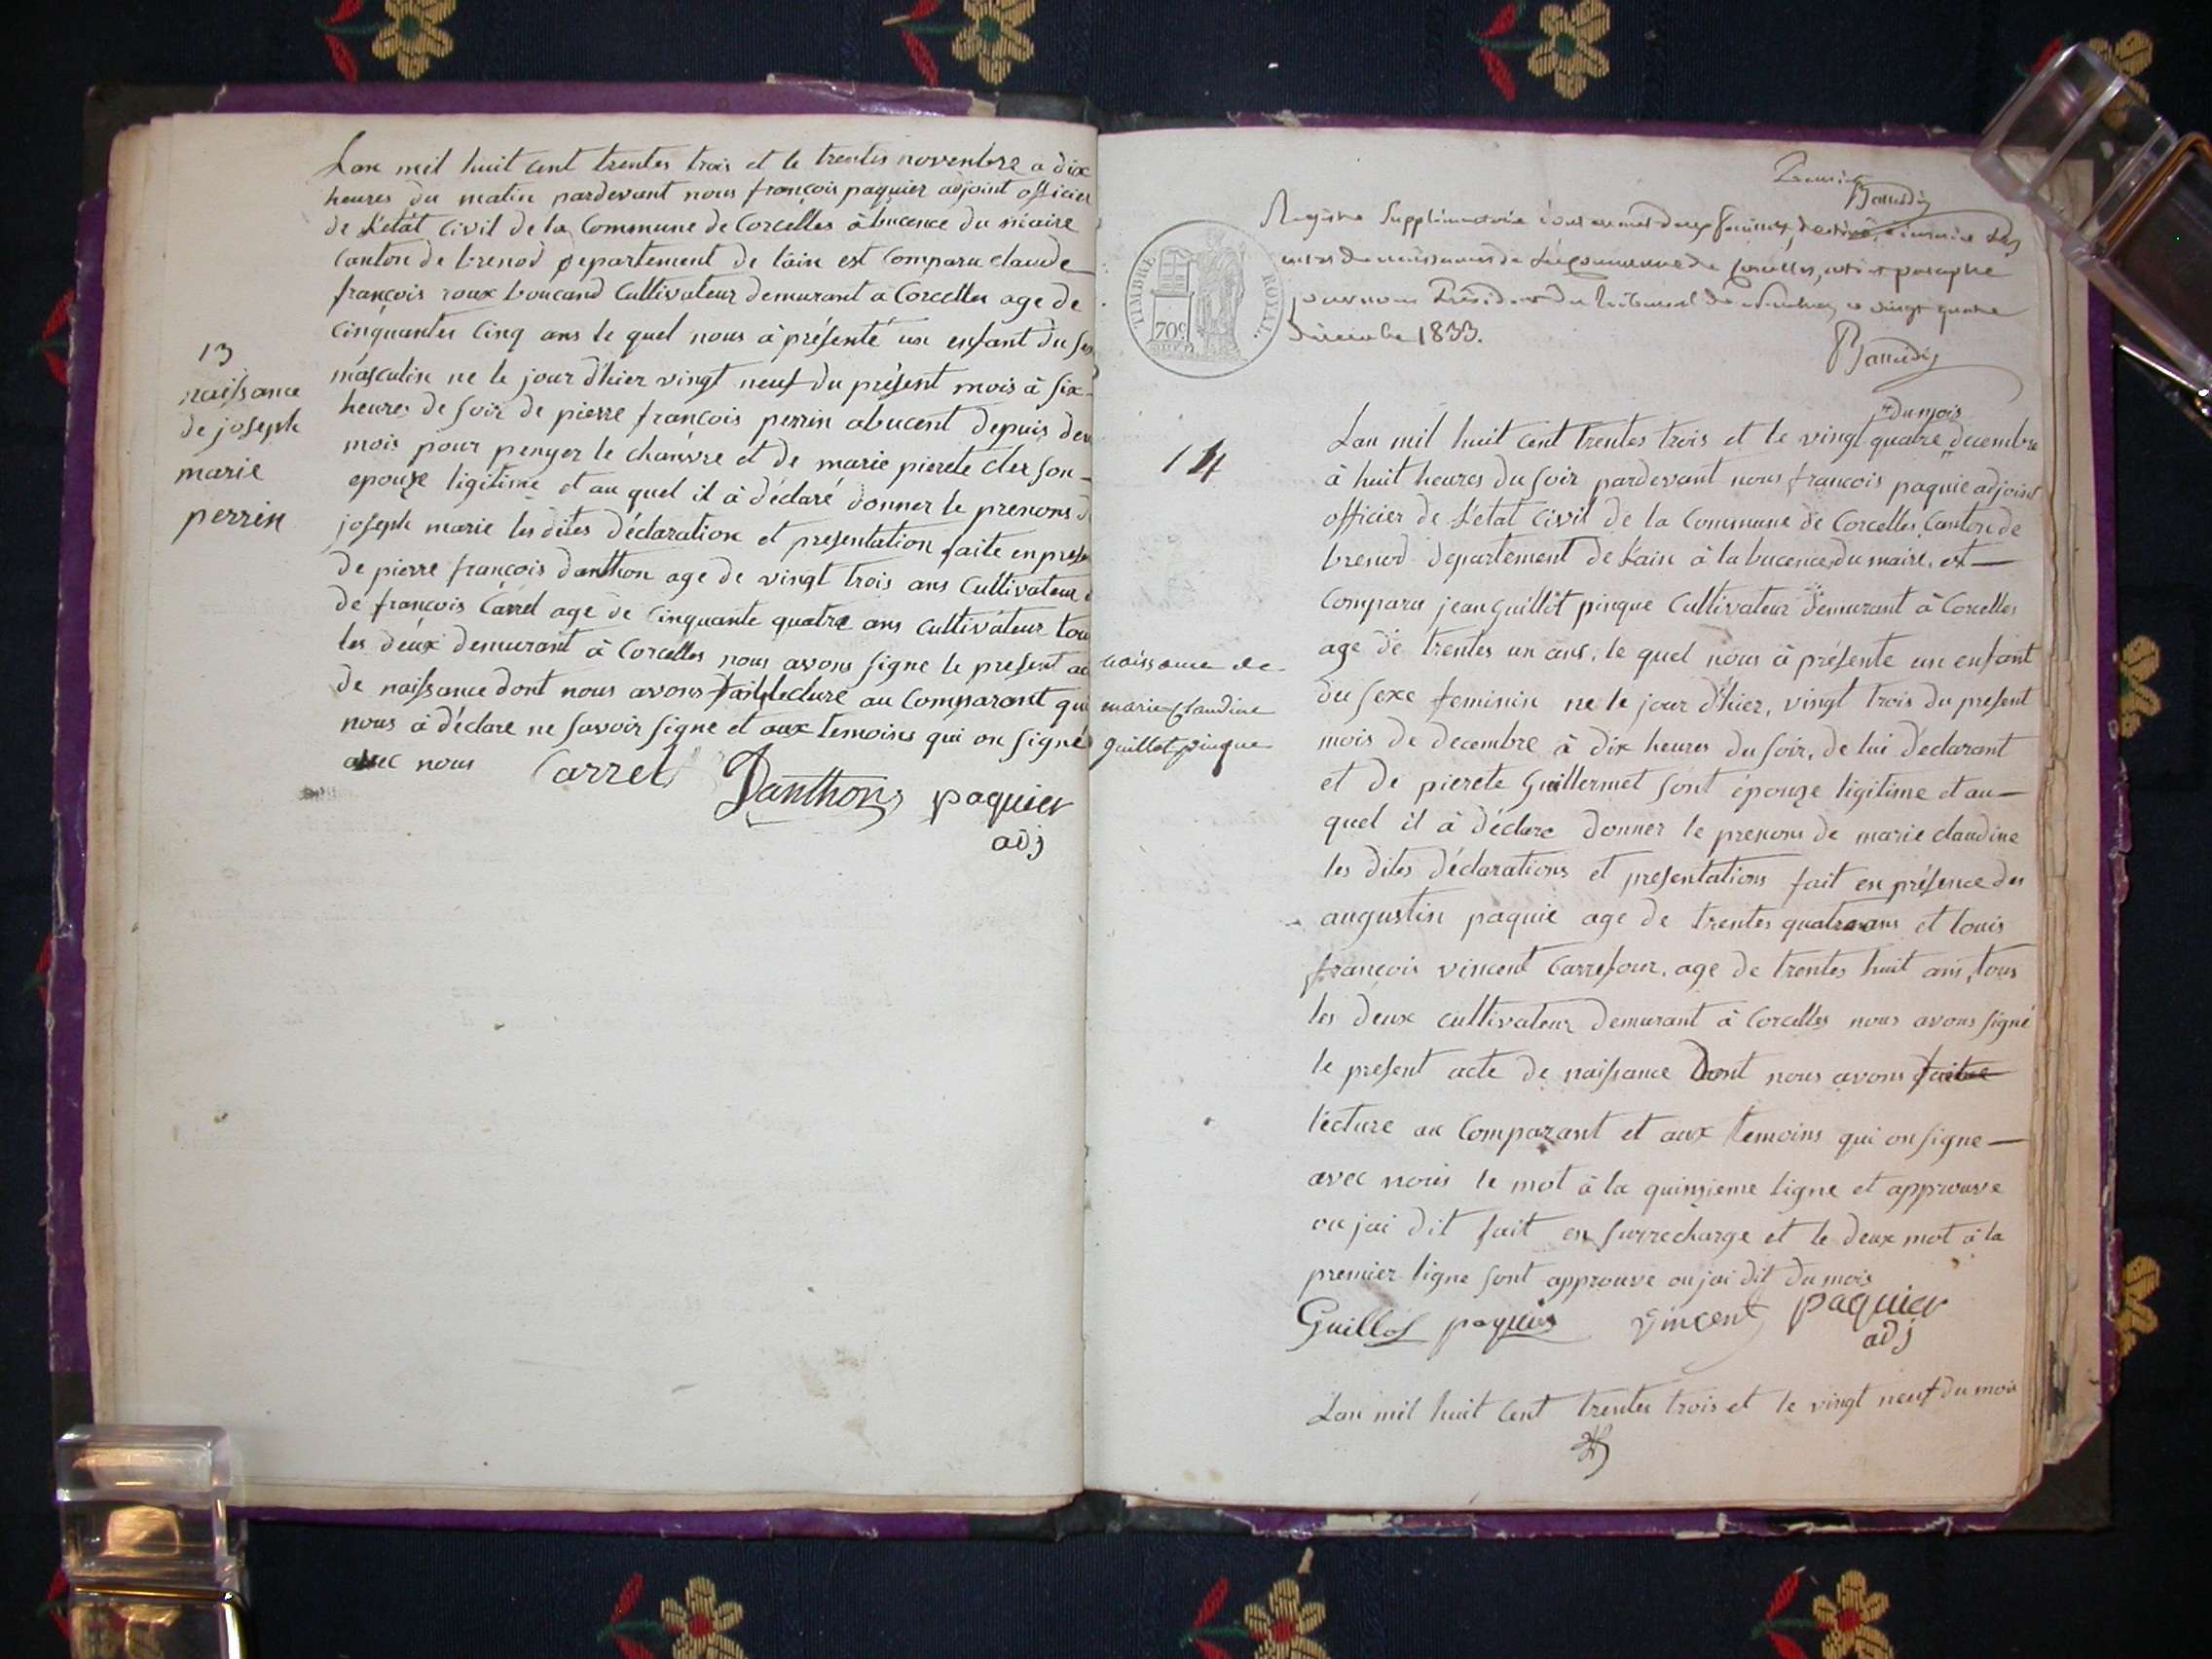 Lan mil huit cent trentes trois et le trentes novembre a dix
heures du matin pardevant nous françois paquier adjoint officier
de L'etat Civil de la Commune de Corcelles àbucence du méaire
Canton de brenod departement de l'ain est Comparu claude
françois roux boucand Cultivateur demurant à Corcelles age de
Cinquantes Cinq ans le quel nous à présenté un enfant du sex
masculin ne le jour d'hier vingt neuf du présent mois à six
heures de soir de pierre françois perrin abucent depuis deu
mois pour penyer le chanvre et de marie pierete cler son
epouze ligitime et au quel il à déclaré donner le prenons d
joseph marie les dites déclaration et presentation faite en prese
de pierre françois danthon age de vingt trois ans Cultivateur
de françois Carrel age de Cinquante quatre ans cultivateur tou
les deux demurant à Corcelles nous avons signe le present ac
de naissance dont nous avons fait lecture au Comparant qui
nous à déclare ne savoir signe et aux temoins qui on signé
avec nous Carrel Danthons paquier
adj
13
naissance
de joseph
marie
perrin
TIMBRE ROYAL
70c
Registre Supplémentaire
Corcelles, coté et paraphé
par nous Président du tribunal de vingt quatre
Décembre 1833.
14
naissance de
marie Claudine
guillot pinque
du mois
Lan mil huit cent trentes trois et le vingt quatre decembre
à huit heures du soir pardevant nous françois paquie adjoint
officier de L'etat Civil de la Commune de Corcelles Canton de
brenod departement de Lain à la bucence du maire, est
Comparu jean guillot pinque Cultivateur demurant à Corcelles
age de trentes un ans, le quel nous à présente un enfant
du sexe feminin ne le jour d'hier, vingt trois du present
mois de decembre à dix heures du soir, de lui déclarant
et de pierete Guillermet sont épouze ligitime et au
quel il à déclare donner le prenom de marie claudine
les dites déclarations et presentations fait en présence des
augustin paquie age de trentes quatre ans et louis
françois vincent Carrefour, age de trentes huit ans, tous
les deux cultivateur demurant à Corcelles nous avons signé
le present acte de naissance Dont nous avons faitue
lecture au Comparant et aux temoins qui on signe
avec nous le mot à la quinzieme ligne et approuve
ou jai dit fait en surrecharge et le deux mot à la
premier ligne sont approuve ou jai dit du mois
Guillot paquier vincent paquier
adj
Lan mil huit cent trentes trois et le vingt neuf du mois